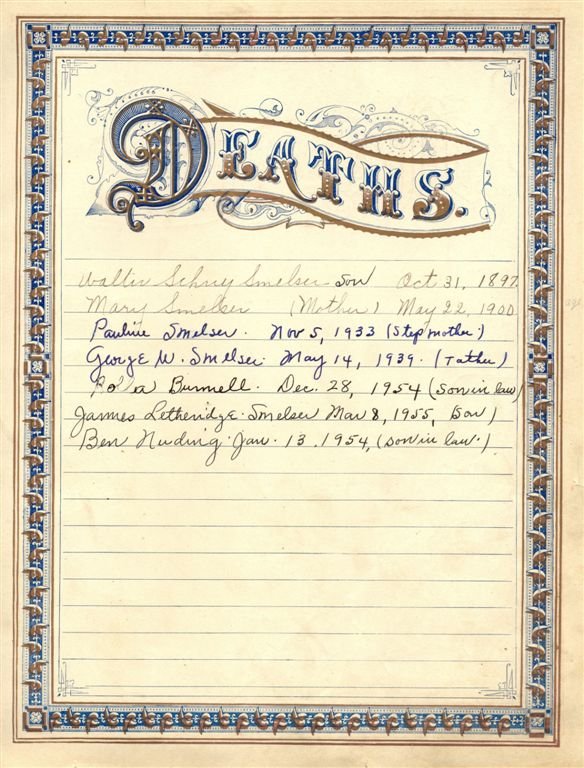 DEATHS.
Walter Schuy Smelser son Oct 31, 1897
Mary Smelser (Mother) May 22, 1900
Pauline Smelser. Nov 5, 1933 (Step mother.)
George W. Smelser. May 14, 1939. (Father)
Burnell. Dec. 28, 1954 (Son in law)
Jammes Letheridge Smelser Mar 8, 1955, Son)
Ben Nuding. Jan. 13. 1954, (son in law.)